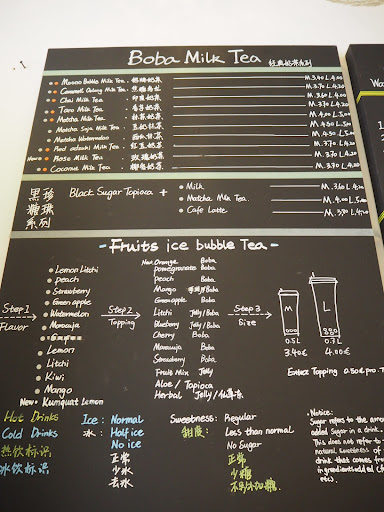 Boba Milk Tea 经典奶茶系列
Momo Bubble Milk Tea.
Caramel Oolong Milk Tea.
Chai Milk Tea. 印度奶茶 M.3.40 L.4.00
Taro Milk Tea. 香芋奶茶 M.3.70 L.4.20
Matcha Milk Tea. 抹茶奶茶
Matcha Soja Milk Tea.
Matcha Watermelon
Red adzuki Milk Tea. 红豆奶茶 M.3.70 L.4.20
New Rose Milk Tea. 玫瑰奶茶 M.3.70 L.4.20
Coconut Milk Tea. 椰香奶茶 M.3.70 L.4.20
黑珍
糖珠
系列
Black Sugar Topioca +
Milk M.3.60 L.4.20
Matcha Milk Tea
Cafe Latte
- Fruits ice bubble Tea -
Step 1
Flavor
Lemon Litchi
peach
Strawberry
Green apple
Watermelon
Maracuja
Lemon
Litchi
Kiwi
Mango
New Kumquat Lemon
Step 2
Topping
New Orange Boba
pomegranate Boba
Peach Boba
Mango Boba
Green apple Boba
Litchi Jelly/Boba
Blueberry Jelly/Boba
Cherry Boba
Maracuja Boba
Strawberry Boba
Fruits Mix Jelly
Aloe / Tapioca
Herbal Jelly/仙草冻
Step 3
Size
M L
0.5L 0.7L
3.40€ 4.00€
Extra Topping 0.50€
Hot Drinks
Cold Drinks
热饮标识
冰饮标识
Ice : Normal
冰 : Half ice
No ice
正常
少冰
去冰
Sweetness: Regular
甜度: Less than normal
No Sugar
正常
少糖
不另外加糖.
Notice:
Sugar refers to the
added Sugar in a drink.
This does not refer to
natural sweetness of
drink that comes from
ingredients added (
etc)